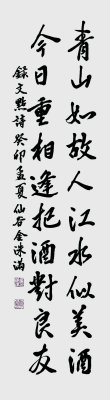 青山如故人江水似美酒
今日重相逢把酒對良友
錄文點詩癸卯孟夏仙谷金洙滿